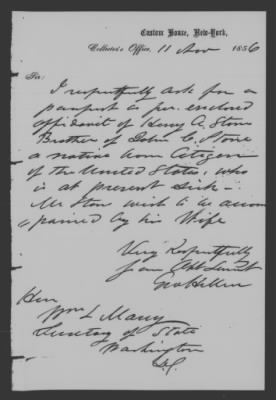 Custom House, New-York,
Collector's Office, 11 Nov 1856
Sir:
I respectfully ask for a
passport as per enclosed
affidavit of Henry A. Stone
Brother of John C. Stone
a native born Citizen
of the United States, who
is at present Sick -
Mr Stone wish to be accom
=panied by his Wife
Very Respectfully
Your Obt Servt
Hon
Wm L Marcy
Secretary of State
Washington
D.C.